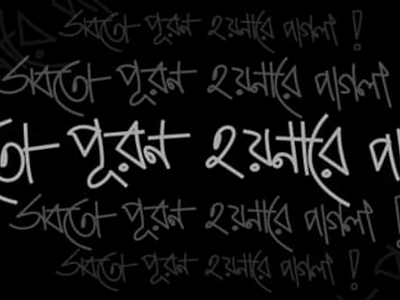 সবতো পূরন হয়নারে পাগলা !
সবতো পূরন হয়নারে পাগলা
তো পূরন হয়নারে পা
সবতো পূরন হয়নারে পাগলা !
সবতো পূরন হয়নারে পাগলা !